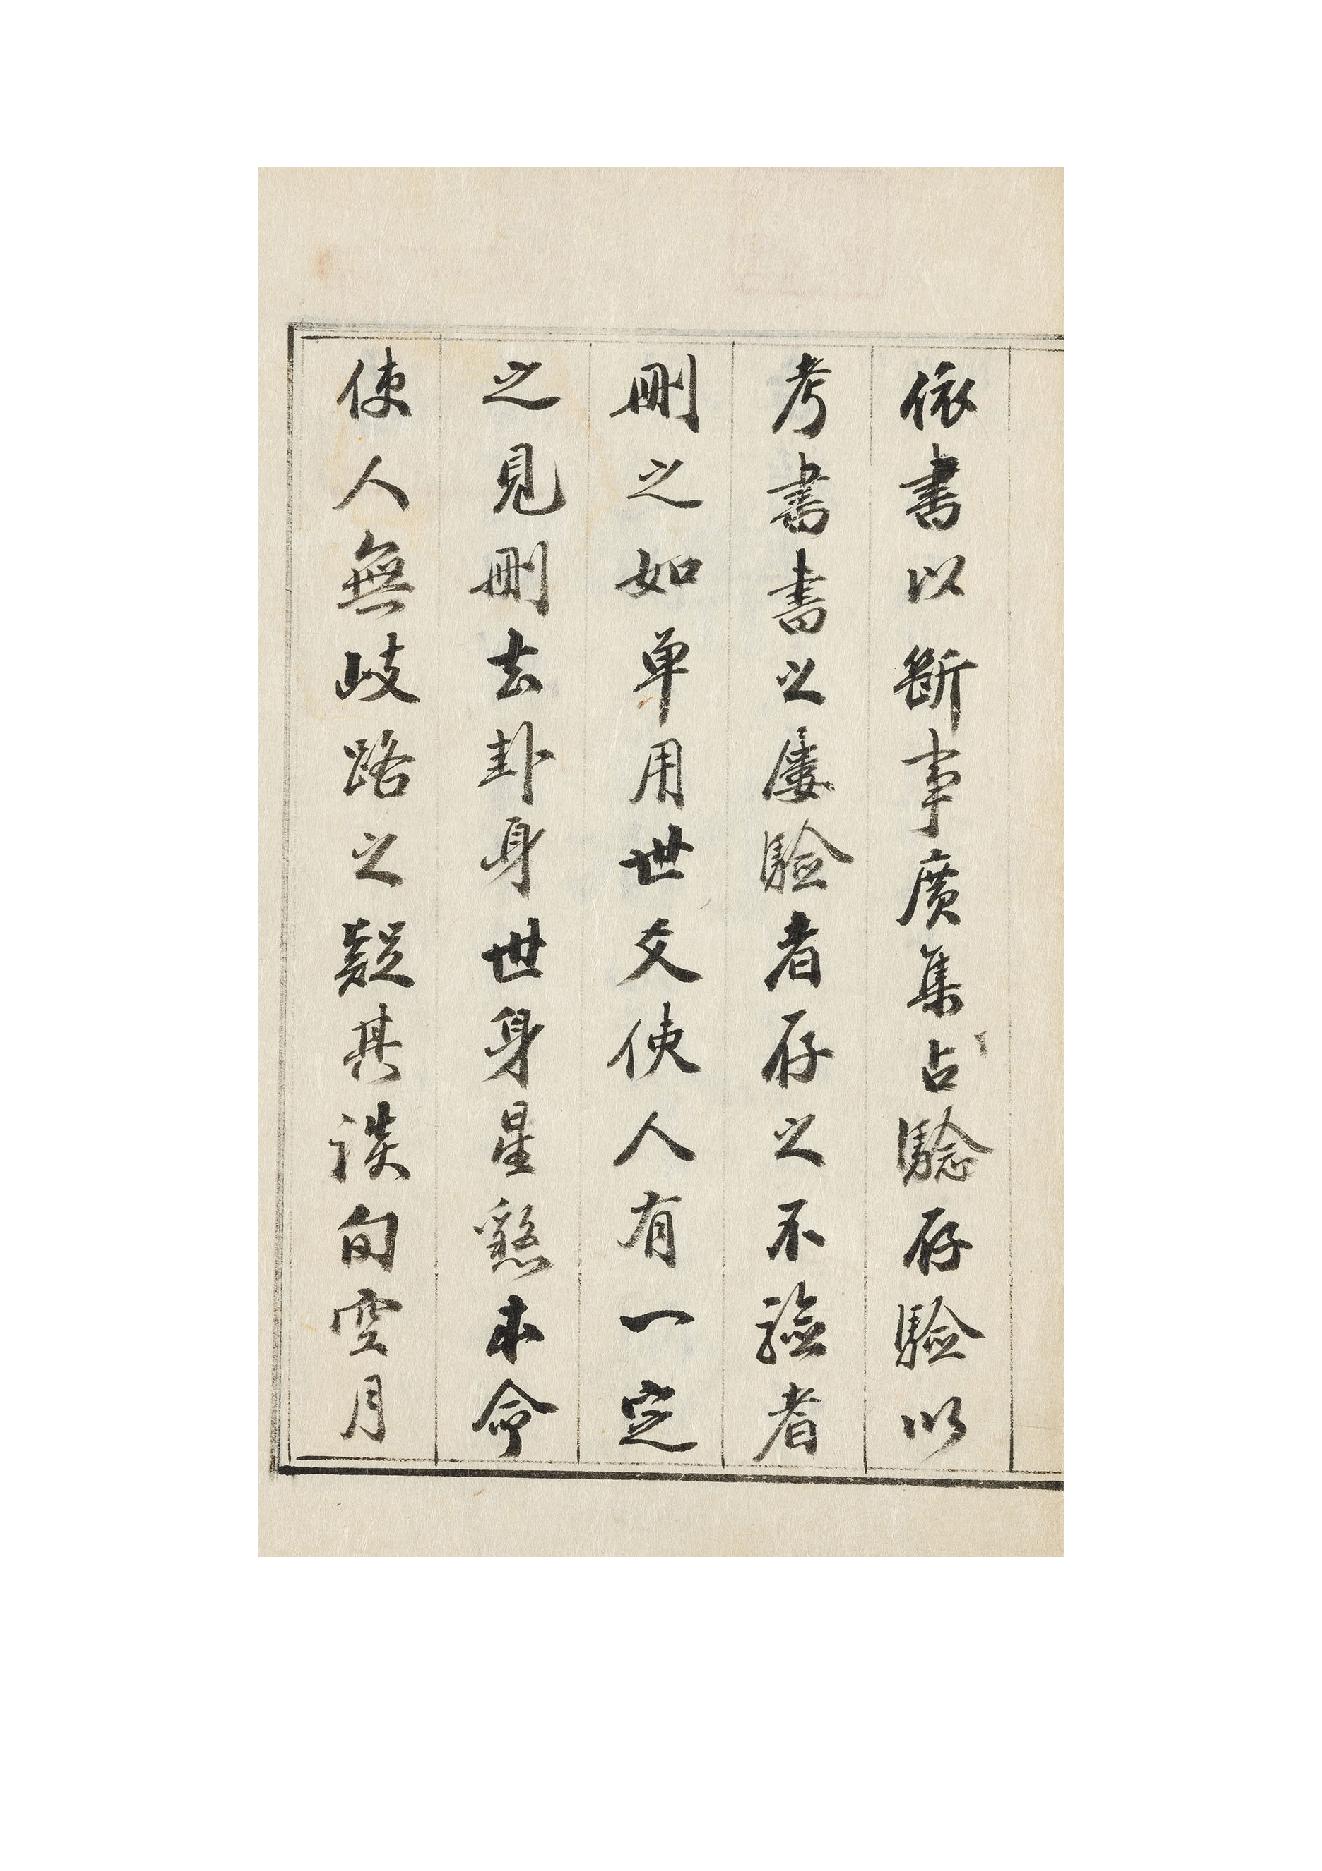 依書以斷事廣集占驗存驗以
考書書之屢驗者存之不驗者
刪之如单用世爻使人有一定
之見刪去卦身世身星煞本命
使人無岐路之疑其談旬空月